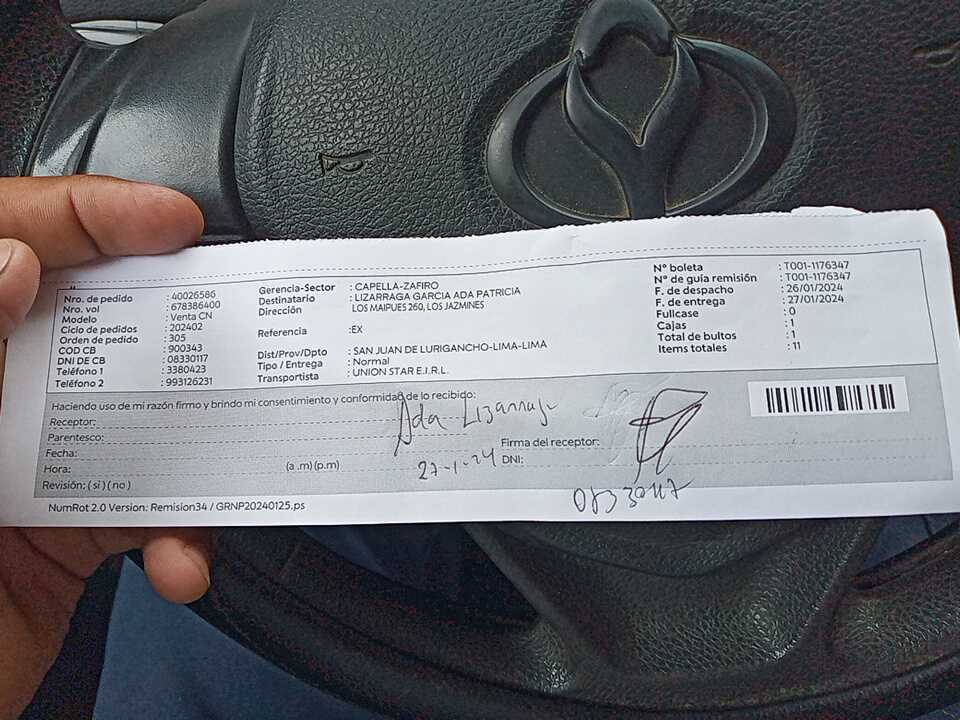 Nro. de pedido : 40026586
Nro. vol : 678386400
Modelo : Venta CN
Ciclo de pedidos : 202402
Orden de pedido : 305
COD CB : 900343
DNI DE CB : 08330117
Teléfono 1 : 3380423
Teléfono 2 : 993126231
Gerencia-Sector : CAPELLA-ZAFIRO
Destinatario : LIZARRAGA GARCIA ADA PATRICIA
Dirección LOS MAIPUES 260, LOS JAZMINES
Referencia :EX
Dist/Prov/Dpto : SAN JUAN DE LURIGANCHO-LIMA-LIMA
Tipo / Entrega : Normal
Transportista : UNION STAR E.I.R.L.
N° boleta : T001-1176347
N° de guía remisión : T001-1176347
F. de despacho : 26/01/2024
F. de entrega : 27/01/2024
Fullcase : 0
Cajas : 1
Total de bultos : 1
Items totales : 11
Haciendo uso de mi razón firmo y brindo mi consentimiento y conformidad de lo recibido:
Receptor: Ada Lizarraga
Parentesco:
Fecha: 27-1-24
Hora: (a .m) (p.m)
Revisión: ( si ) ( no )
Firma del receptor:
DNI: 08330117
NumRot 2.0 Version: Remision34 / GRNP20240125.ps